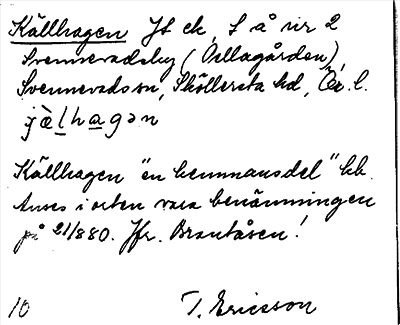 Källhagen
Svennevadsby (Oellagården)
Svennevads sn, Sköllersta hd, Ör. l.
Källhagen "en hemmansdel" hk.
Anses i orten vara benämningen
på 21/880. Jfr. Brantåsen!
10 T. Ericsson